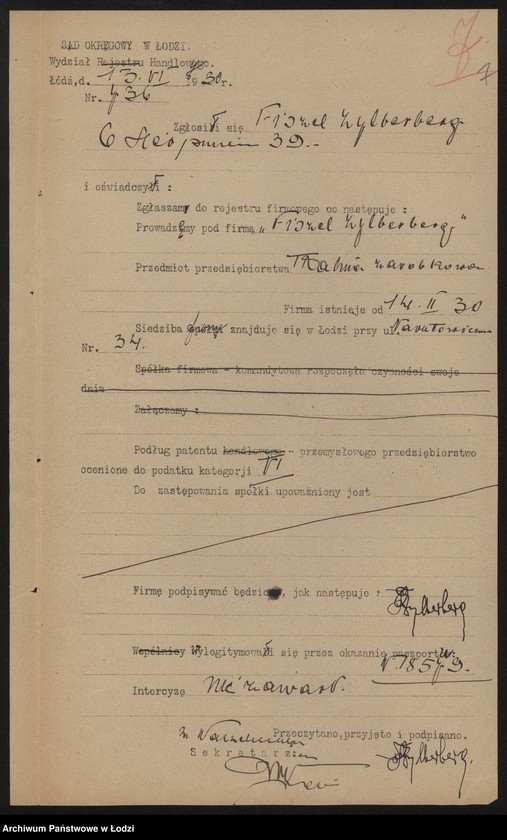 SĄD OKRĘGOWY W ŁODZI.
Wydział Rejestru Handlowego.
Łódź, d. 13.VI 1930r.
Nr. 736
Zgłosił się Fiszel Zylberberg
6 Sierpnia 39.-
i oświadczył :
Zgłaszam do rejestru firmowego co następuje :
Prowadzę pod firmą „Fiszel Zylberberg"
Przedmiot przedsiębiorstwa Tkalnia zarobkowa
Firma istnieje od 14.II 30
Siedziba znajduje się w Łodzi przy ul. Narutowicza
Nr. 34.
Spółka firmowa - komandytowa rozpoczęła czynności swoje
dnia
Załączamy :
Podług patentu handlowego - przemysłowego przedsiębiorstwo
ocenione do podatku kategorji VI
Do zastępowania spółki upoważniony jest
Firmę podpisywać będzie, jak następuje :
FZylberberg
Wspólnicy Wylegitymował się przez okazanie paszportu:
Intercyzę nie zawarł.
Przeczytano, przyjęto i podpisano.
Sekretarz
FZylberberg.
Archiwum Państwowe w Łodzi